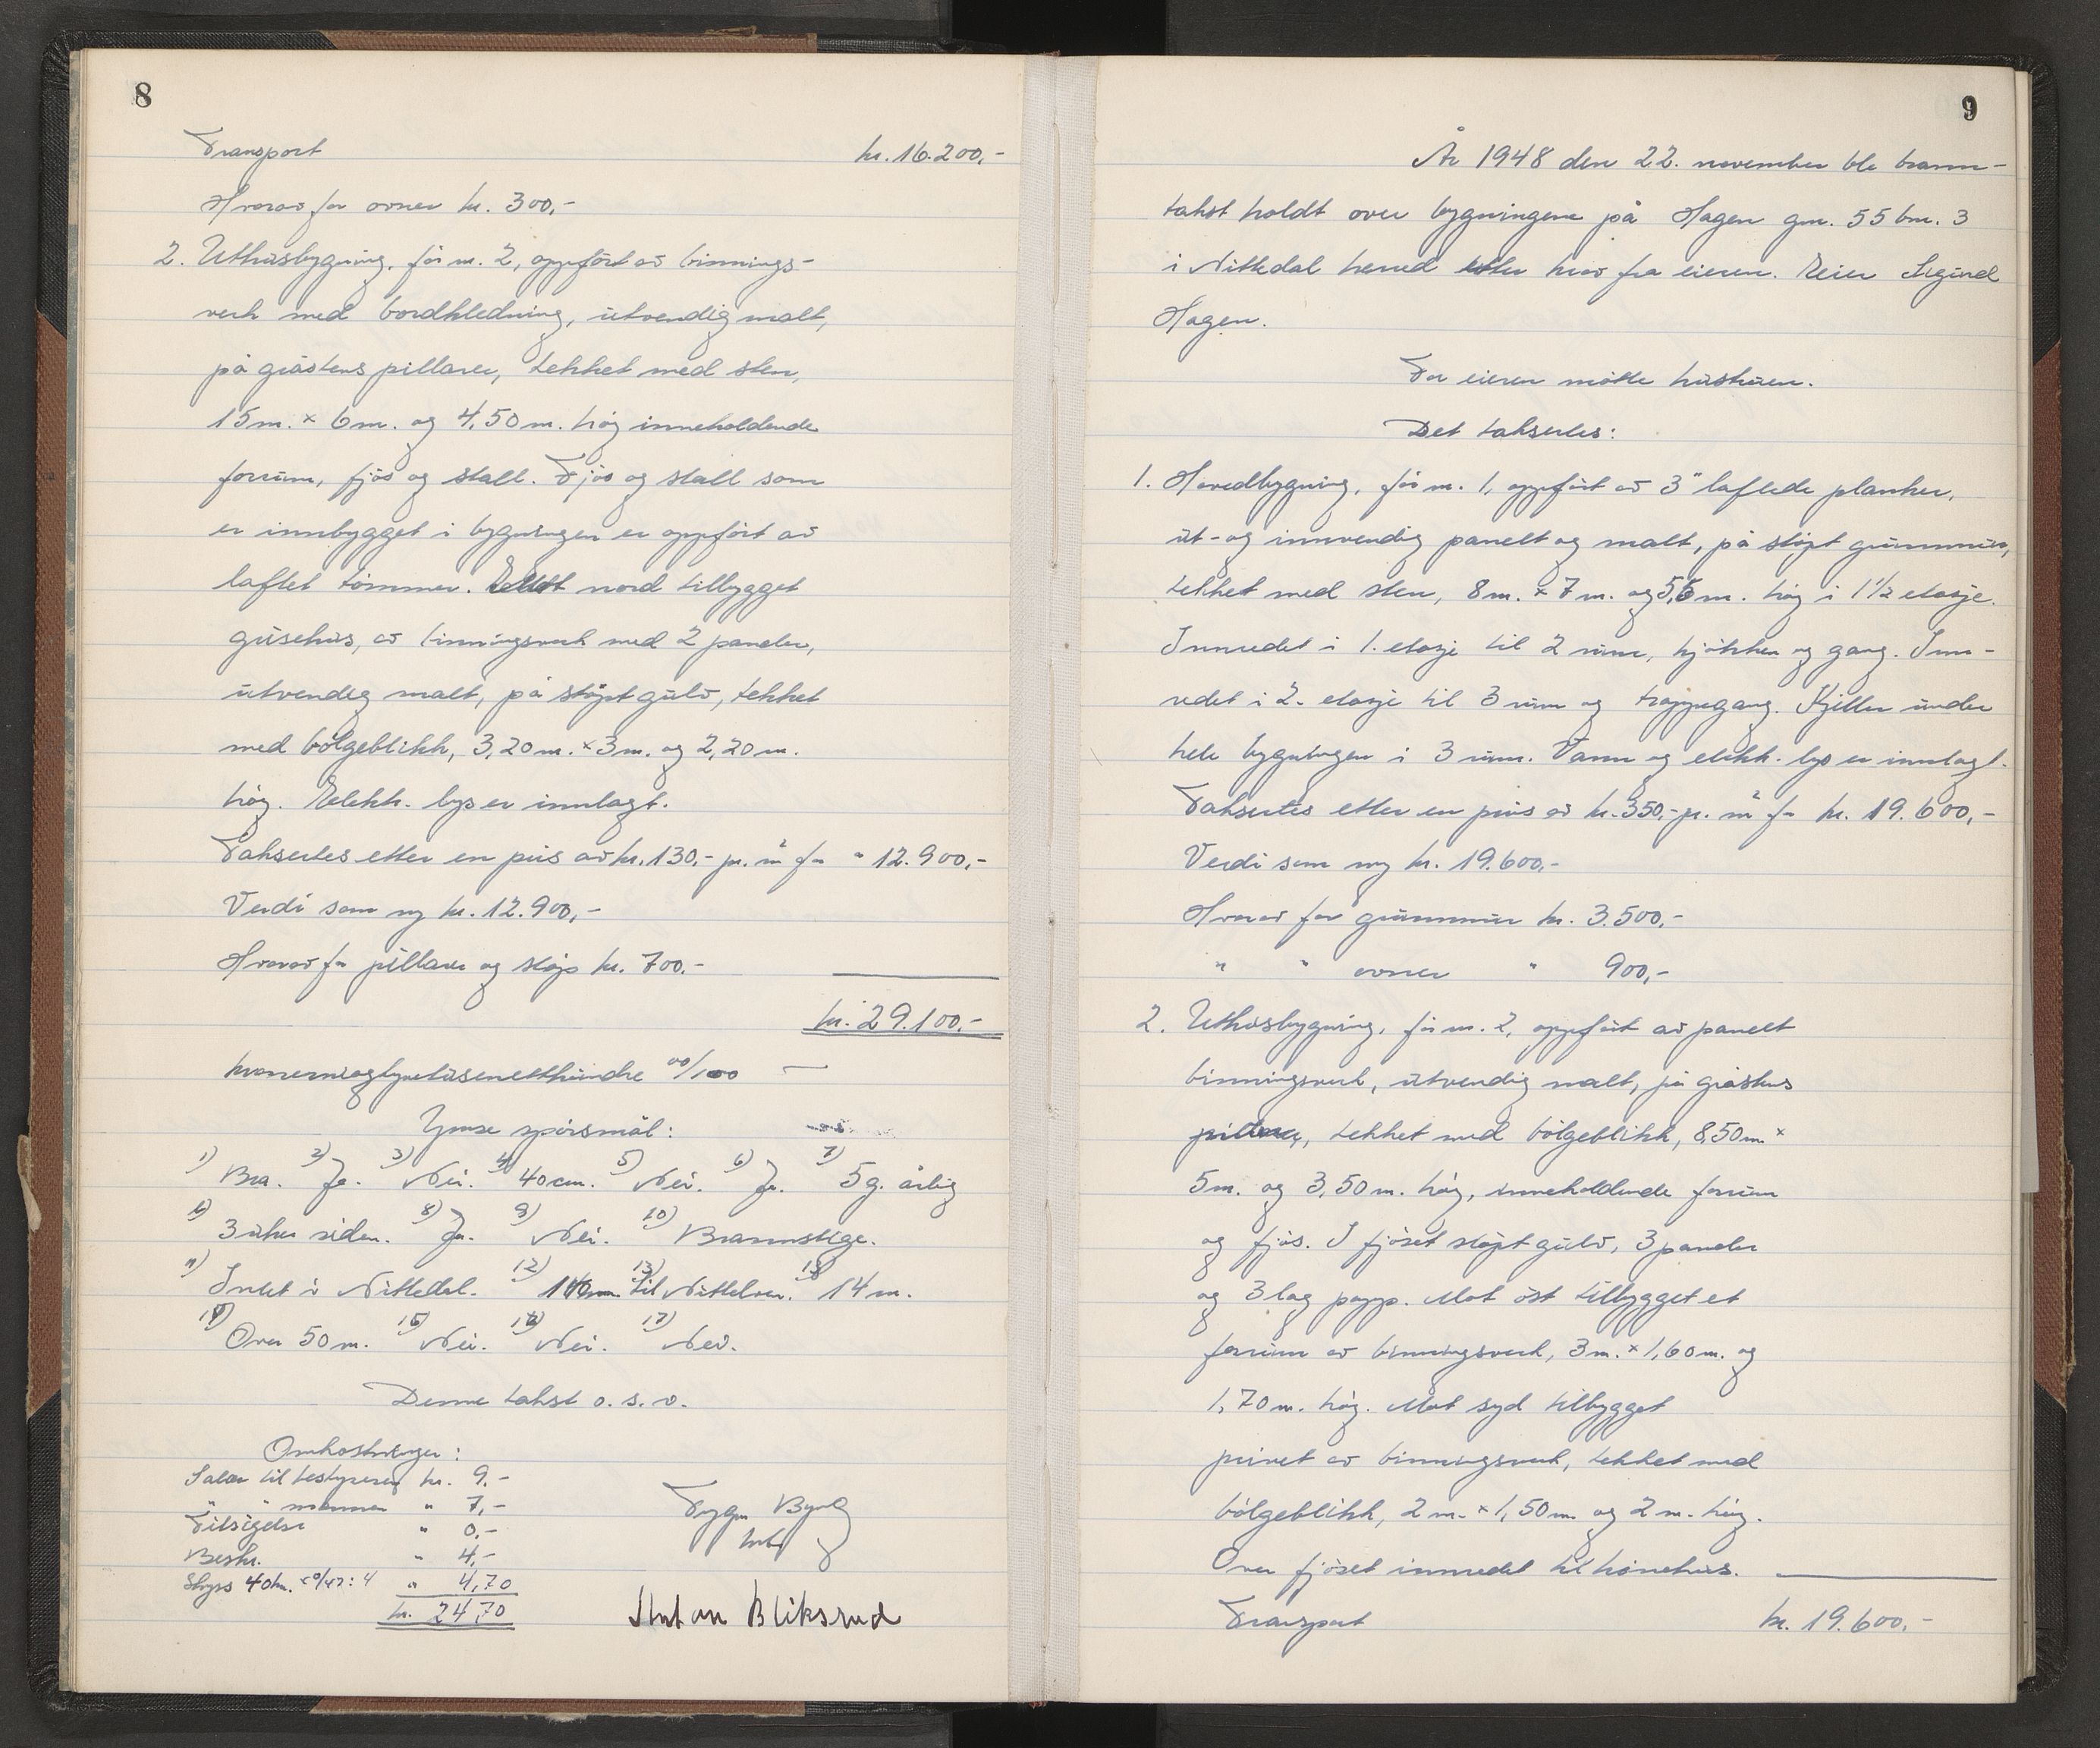 8
Transport kr. 16.200,-
Hvorav for ovner kr. 300,-
2. Uthusbygning, før nr. 2, oppført av binnings-
verk med bordkledning, utvendig malt,
på gråstens pillarer, tekket med sten,
15 m. x 6 m. og 4,50 m. høg inneholdende
forrum, fjøs og stall. Fjøs og stall som
er innbygget i bygningen er oppført av
laftet tømmer. nord tilbygget
grisehus, av binningsverk med 2 paneler,
utvendig malt, på støpt gulv, tekket
med bølgeblikk, 3,20 m. x 3 m. og 2,20 m.
høg. Elekk. lys er innlagt.
Takseres etter en pris av kr. 130,- pr. m² for " 12.900,-
Verdi som ny kr. 12.900,-
Hvorav for pillarer og støp kr. 700.-
kr. 29.100.-
kronerniogtyvetusenetthundre 00/100 —
Ymse spørsmål:
1) Bra. 2) Ja. 3) Nei. 4) 40 cm. 5) Nei. 6) Ja. 7) 5 g. årlig
3 uker siden. 8) Ja. 9) Nei. 10) Brannstige.
11) Intet i Nittedal. 12) til Nittelven. 14 m.
Over 50 m. 15) Nei. 16) Nei. 17) Nei.
Denne takst o. s. v.
Omkostninger:
Salær til bestyreren kr. 9.-
" " mannen " 7,-
Tilsigelse " 0,-
Beskr. " 4,-
Skyss 40 km. : 4 " 4,70
kr. 24,70
Anton Bliksrud
9
År 1948 den 22. november ble brann-
takst holdt over bygningene på Hagen gnr. 55 bnr. 3
i Nittedal herred etter krav fra eieren. Eier Sigurd
Hagen.
For eieren møtte hustruen.
Det takseres:
1. Hovedbygning, før nr. 1, oppført av 3" laftede planker,
ut- og innvendig panelt og malt, på støpt grunnmur,
tekket med sten, 8 m. x 7 m. og 5,5 m. høg i 1 1/2 etasje.
Innredet i 1. etasje til 2 rum, kjøkken og gang. Inn-
redet i 2. etasje til 3 rum og trappegang. Kjeller under
hele bygningen i 3 rum. Vann og elekk. lys er innlagt.
Takseres etter en pris av kr. 350,- pr. m² for kr. 19.600,-
Verdi som ny kr. 19.600,-
Hvorav for grunnmur kr. 3.500,-
" " ovner " 900,-
2. Uthusbygning, før nr. 2, oppført av panelt
binningsverk, utvendig malt, på gråstens
pillarer, tekket med bølgeblikk, 8,50 m x
5 m. og 3,50 m. høg, inneholdende forrum
og fjøs. I fjøset støpt gulv, 3 paneler
og 3 lag papp. Mot øst tilbygget et
forrum av binningsverk, 3 m. x 1,60 m. og
1,70 m. høg. Mot syd tilbygget
privet av binningsverk, tekket med
bølgeblikk, 2 m. x 1,50 m. og 2 m. høg.
Over fjøset innredet til hønehus.
Transport kr. 19.600,-